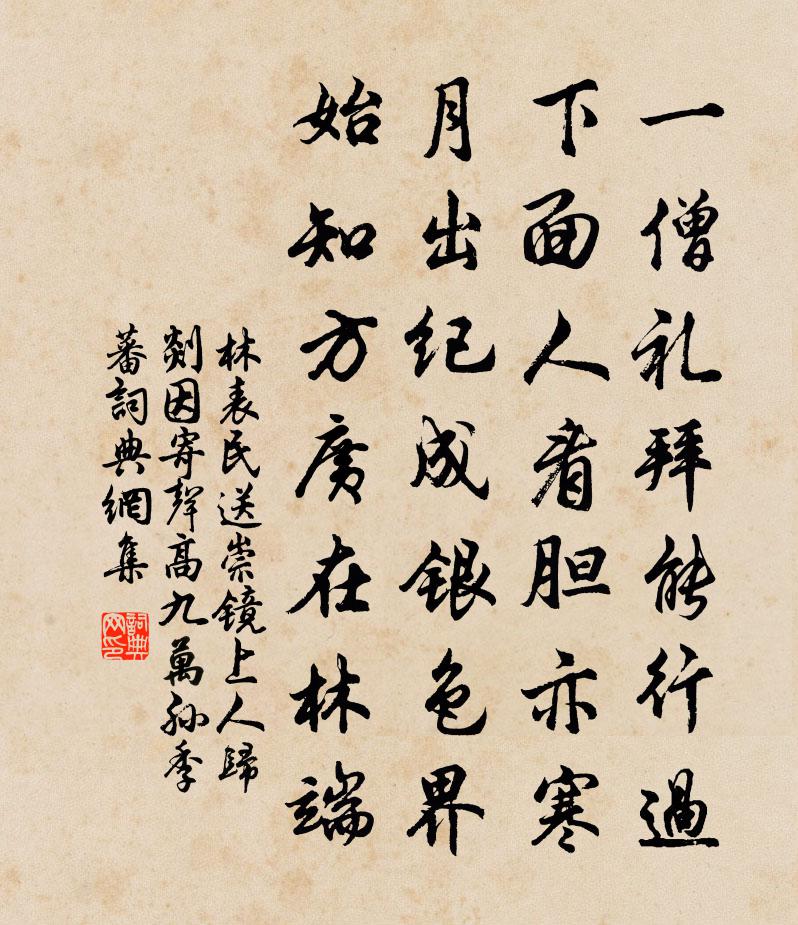 一僧礼拜能行過
下面人看胆亦寒
月出纪成銀色界
始知方廣在林端
林表民送崇镜上人歸
剡因寄聲高九萬孙季
蕃詞典網集
詞典网印